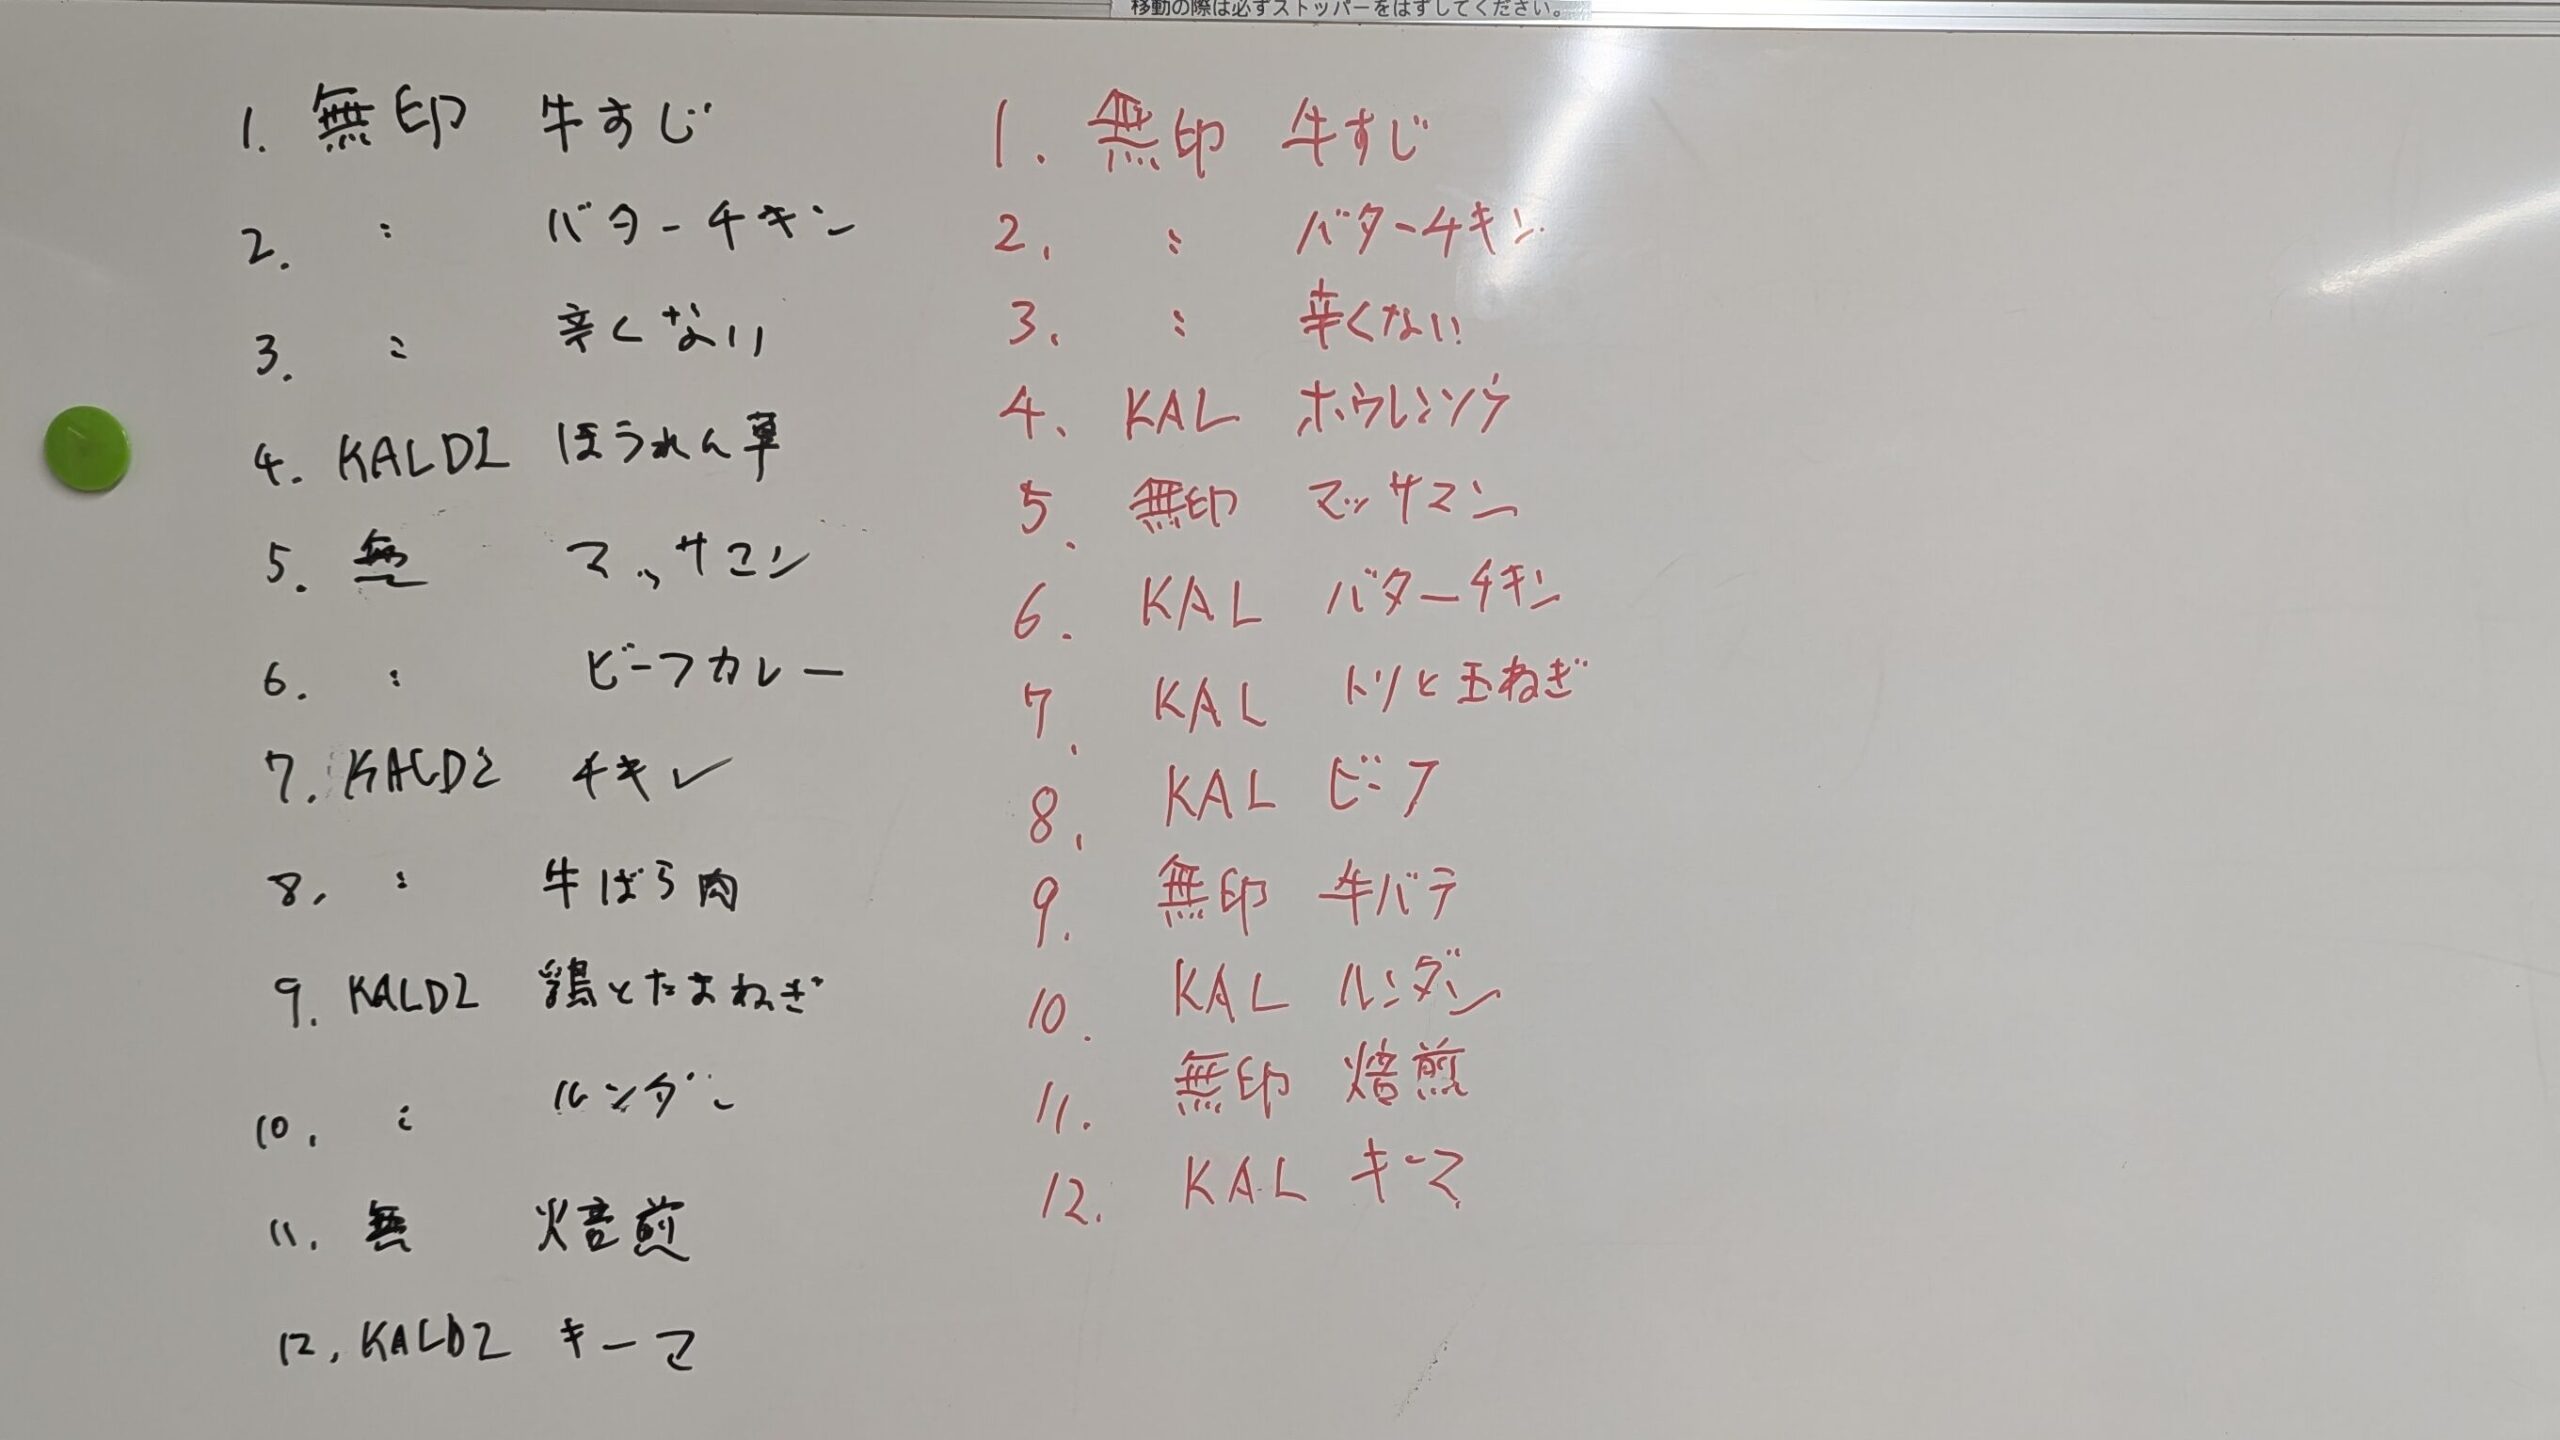 移動の際は必ずストッパーをはずしてください。
1. 無印 牛すじ
2. 〃 バターチキン
3. 〃 辛くない
4. KALDI ほうれん草
5. 無 マッサマン
6. 〃 ビーフカレー
7. KALDI チキン
8. 〃 牛ばら肉
9. KALDI 鶏とたまねぎ
10. 〃 ルンダン
11. 無 焙煎
12. KALDI キーマ
1. 無印 牛すじ
2. 〃 バターチキン
3. 〃 辛くない
4. KAL ホウレンソウ
5. 無印 マッサマン
6. KAL バターチキン
7. KAL トリと玉ねぎ
8. KAL ビーフ
9. 無印 牛バラ
10. KAL ルンダン
11. 無印 焙煎
12. KAL キーマ